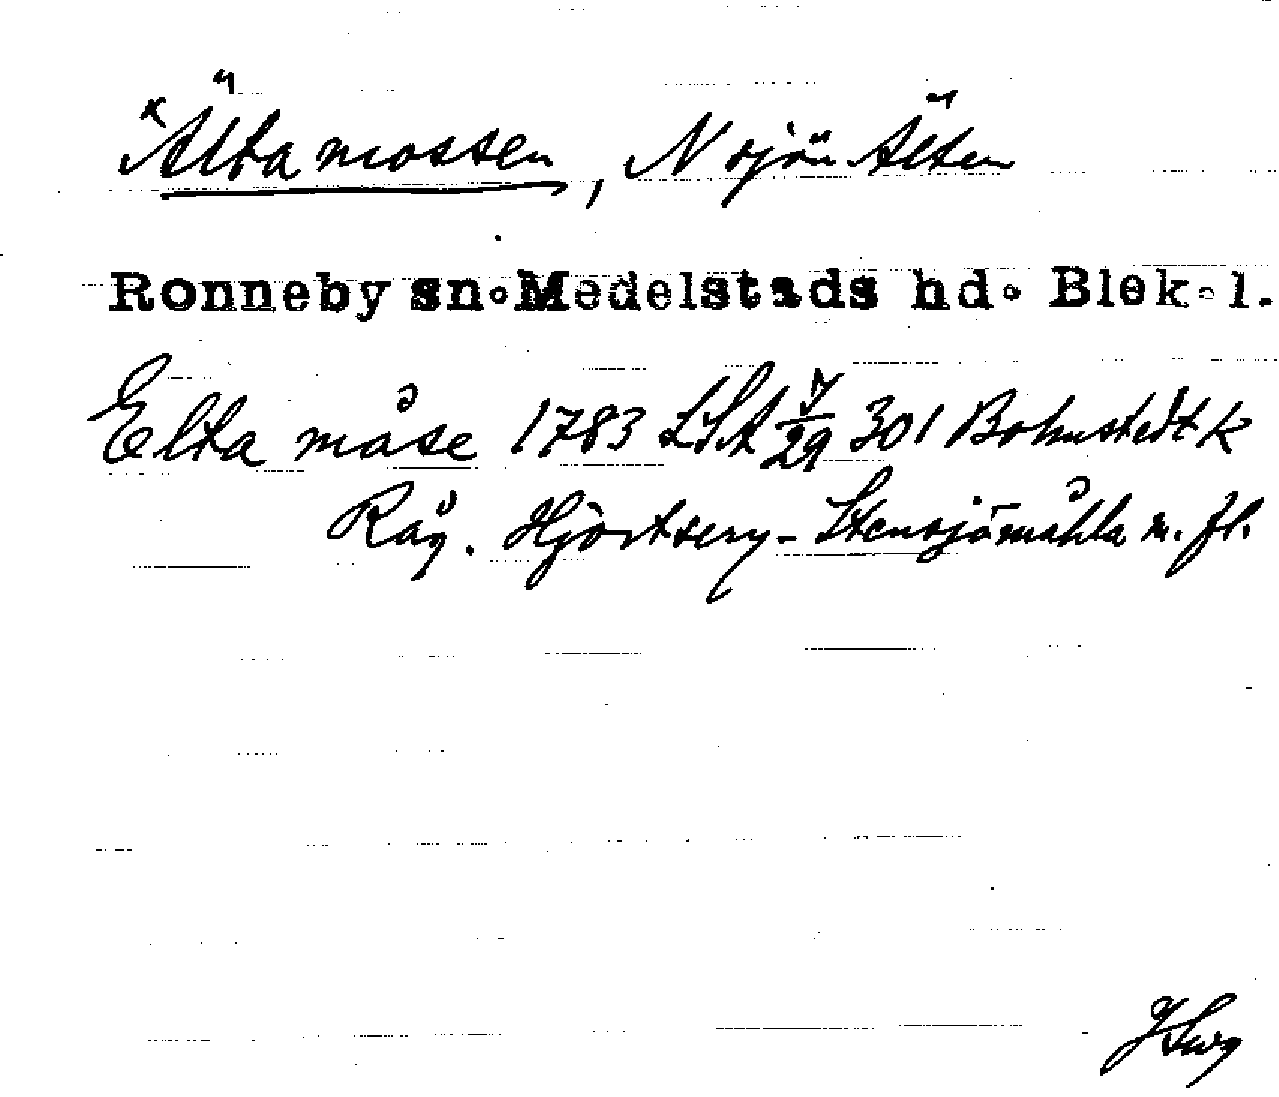 ×Älta mossen, N sjön Älten
Ronneby sn. Medelstads hd. Blek. l.
Elta måse 1783 LSA V/29 301 Bohnstedt k
Råg. Hjörtsery - Stensjömåhla m. fl.